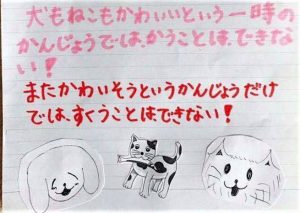 犬もねこもかわいいという一時の
かんじょうでは、かうことは、できな
い!
またかわいそうというかんじょうだけ
では、すくうことはできない!